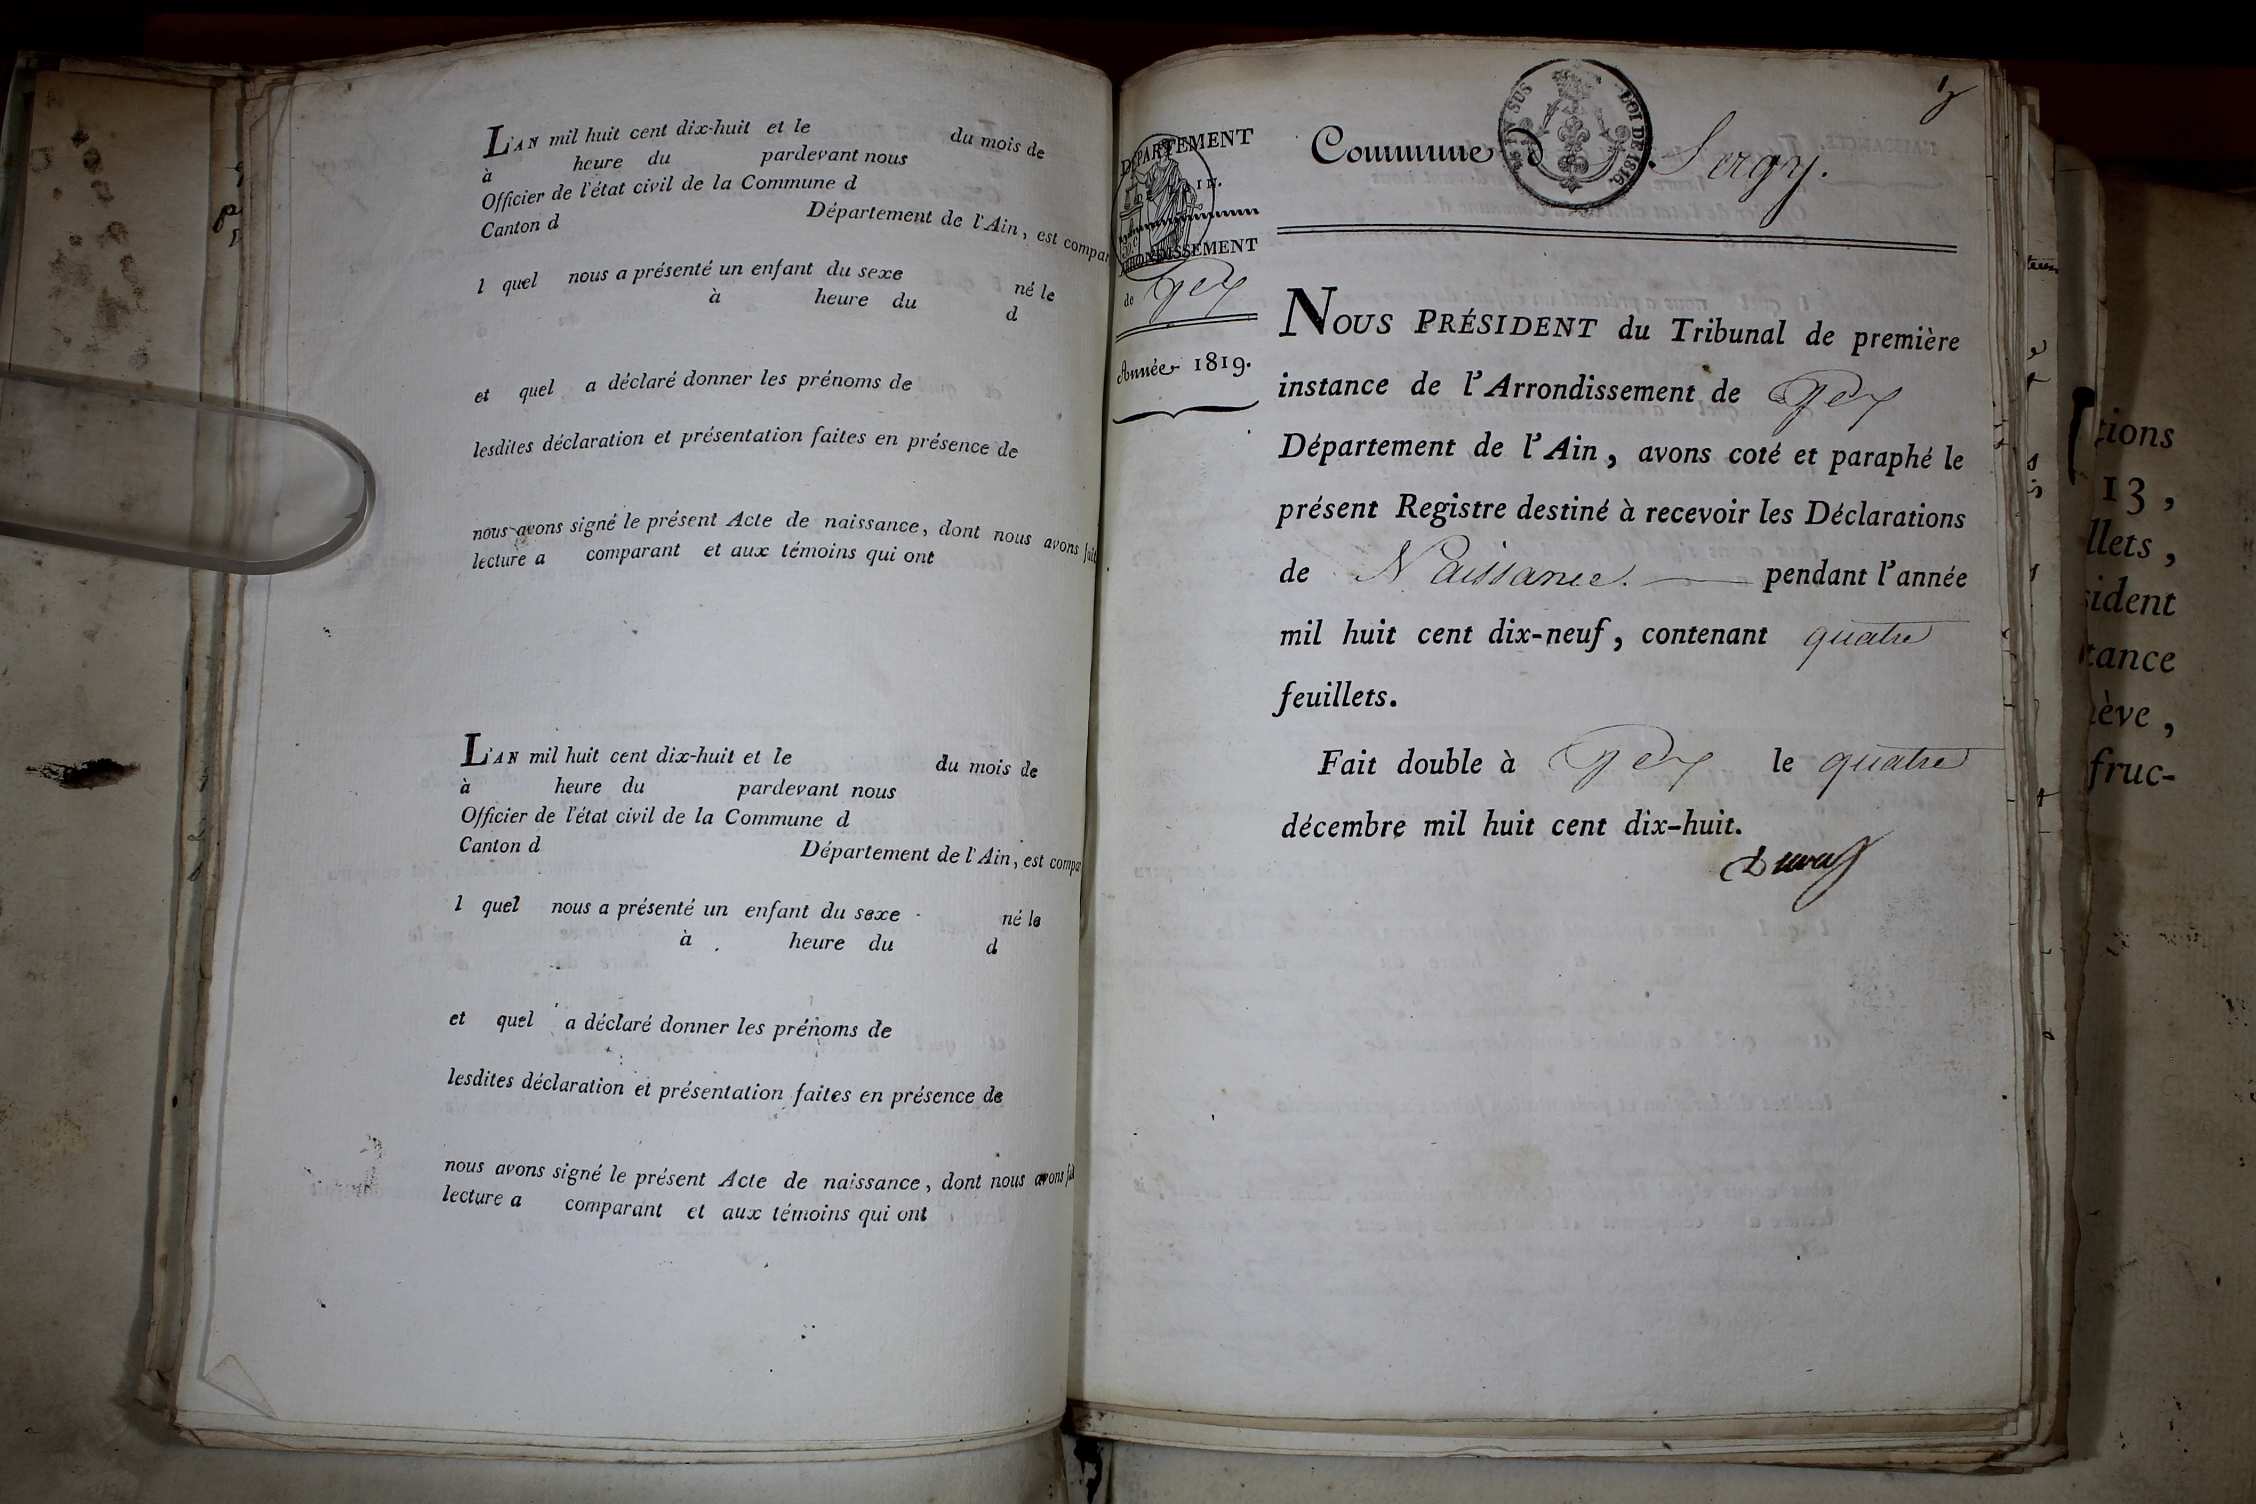 L'AN mil huit cent dix-huit et le du mois de
à heure du pardevant nous
Officier de l'état civil de la Commune d
Canton d Département de l'Ain, est compar
l quel nous a présenté un enfant du sexe né le
à heure du d
et quel a déclaré donner les prénoms de
lesdites déclaration et présentation faites en présence de
nous avons signé le présent Acte de naissance, dont nous avons fait
lecture a comparant et aux témoins qui ont
L'AN mil huit cent dix-huit et le du mois de
à heure du pardevant nous
Officier de l'état civil de la Commune d
Canton d Département de l'Ain, est compa
l quel nous a présenté un enfant du sexe né le
à heure du d
et quel a déclaré donner les prénoms de
lesdites déclaration et présentation faites en présence de
nous avons signé le présent Acte de naissance, dont nous avons fait
lecture a comparant et aux témoins qui ont
DÉPARTEMENT
AIN.
ARRONDISSEMENT
de Gex
Année 1819.
Commune d Sergy.
EN SUS LOI DE 1816.
NOUS PRÉSIDENT du Tribunal de première
instance de l'Arrondissement de Gex
Département de l'Ain, avons coté et paraphé le
présent Registre destiné à recevoir les Déclarations
de Naissance. pendant l'année
mil huit cent dix-neuf, contenant quatre
feuillets.
Fait double à Gex le quatre
décembre mil huit cent dix-huit.
tions
13,
llets,
sident
tance
nève,
fruc-